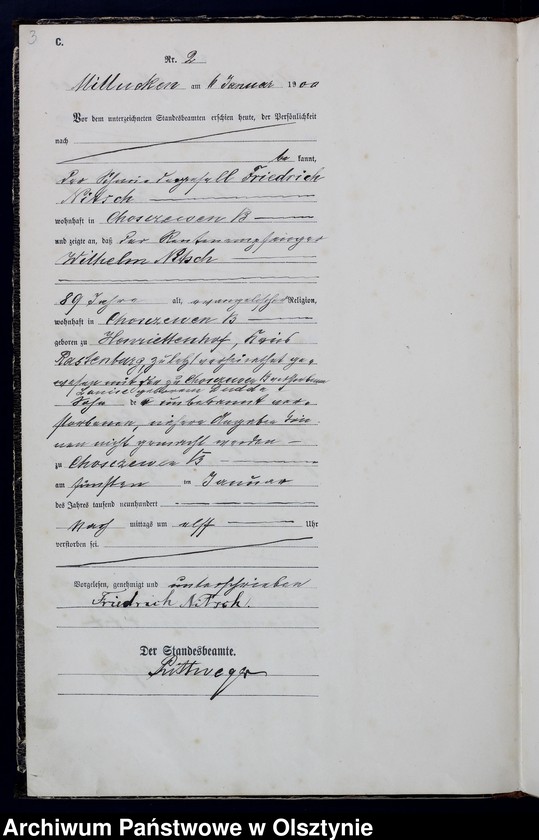 3
C.
Nr. 2
Milluken am 6 Januar 1900
Vor dem unterzeichneten Standesbeamten erschien heute, der Persönlichkeit
nach
be kannt,
der Schmiedegesell Friedrich
Nitsch
wohnhaft in Chosczewen B
und zeigte an, daß der Rentenempfänger
Wilhelm Nitsch
89 Jahre alt, evangelischer Religion,
wohnhaft in Chosczewen B
geboren zu Henriettenhof, Kreis
Rastenburg, zuletzt verheirathet ge-
wesen mit der zu Chosczewen B verstorbenen
Louise geborenen
Sohn de r unbekannt ver-
storbenen, nähere Angaben kön-
nen nicht gemacht werden
zu Chosczewen B
am fünften im Januar
des Jahres tausend neunhundert
Nach mittags um elf Uhr
verstorben sei.
Vorgelesen, genehmigt und unterschrieben
Friedrich Nitsch.
Der Standesbeamte.
Archiwum Państwowe w Olsztynie